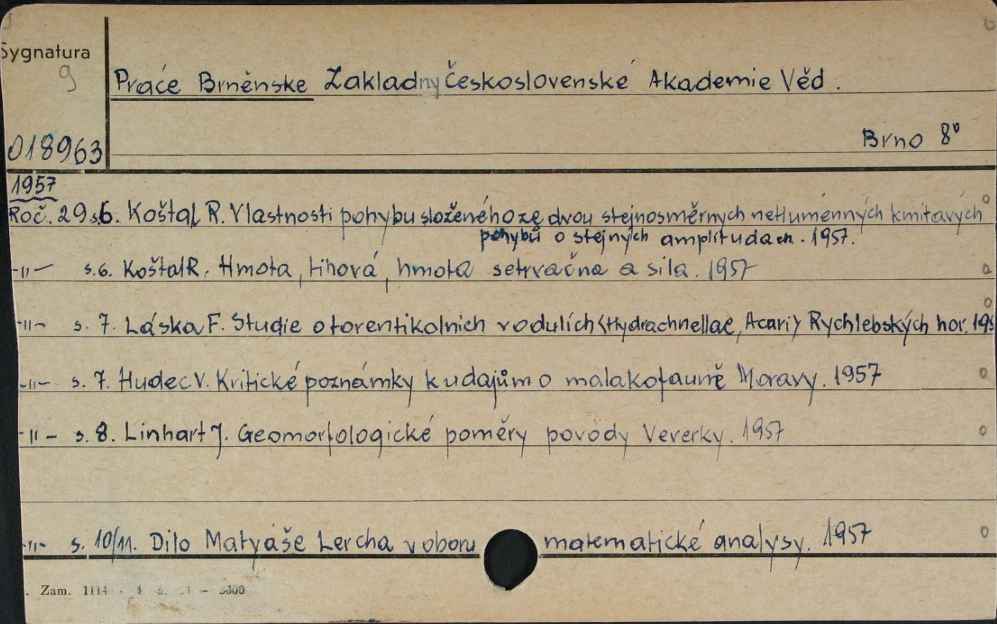 Sygnatura
9
Praće Brněnske Zakladny Československé Akademie Věd.
018963
Brno 8°
1957
Roč. 29 s.6. Koštal R. Vlastnosti pohybu složeného ze dvou stejnosměrnych netluménných kmitavých
pohybů o stejných amplitudach. 1957.
-"- s.6. Koštal R. Hmota, tíhová, hmota setrvačna a sila. 1957
-"- s. 7. Láska F. Studie o torentikolnich vodulích (Hydrachnellae, Acari) Rychlebských hor. 195
-"- s. 7. Hudec V. Kritické poznámky k udajům o malakofauně Moravy. 1957
-"- s. 8. Linhart J. Geomorfologické poměry povody Veverky. 1957
-"- s. 10/11. Dilo Matyáše Lercha v oboru matematické analysy. 1957
Zam. 1114